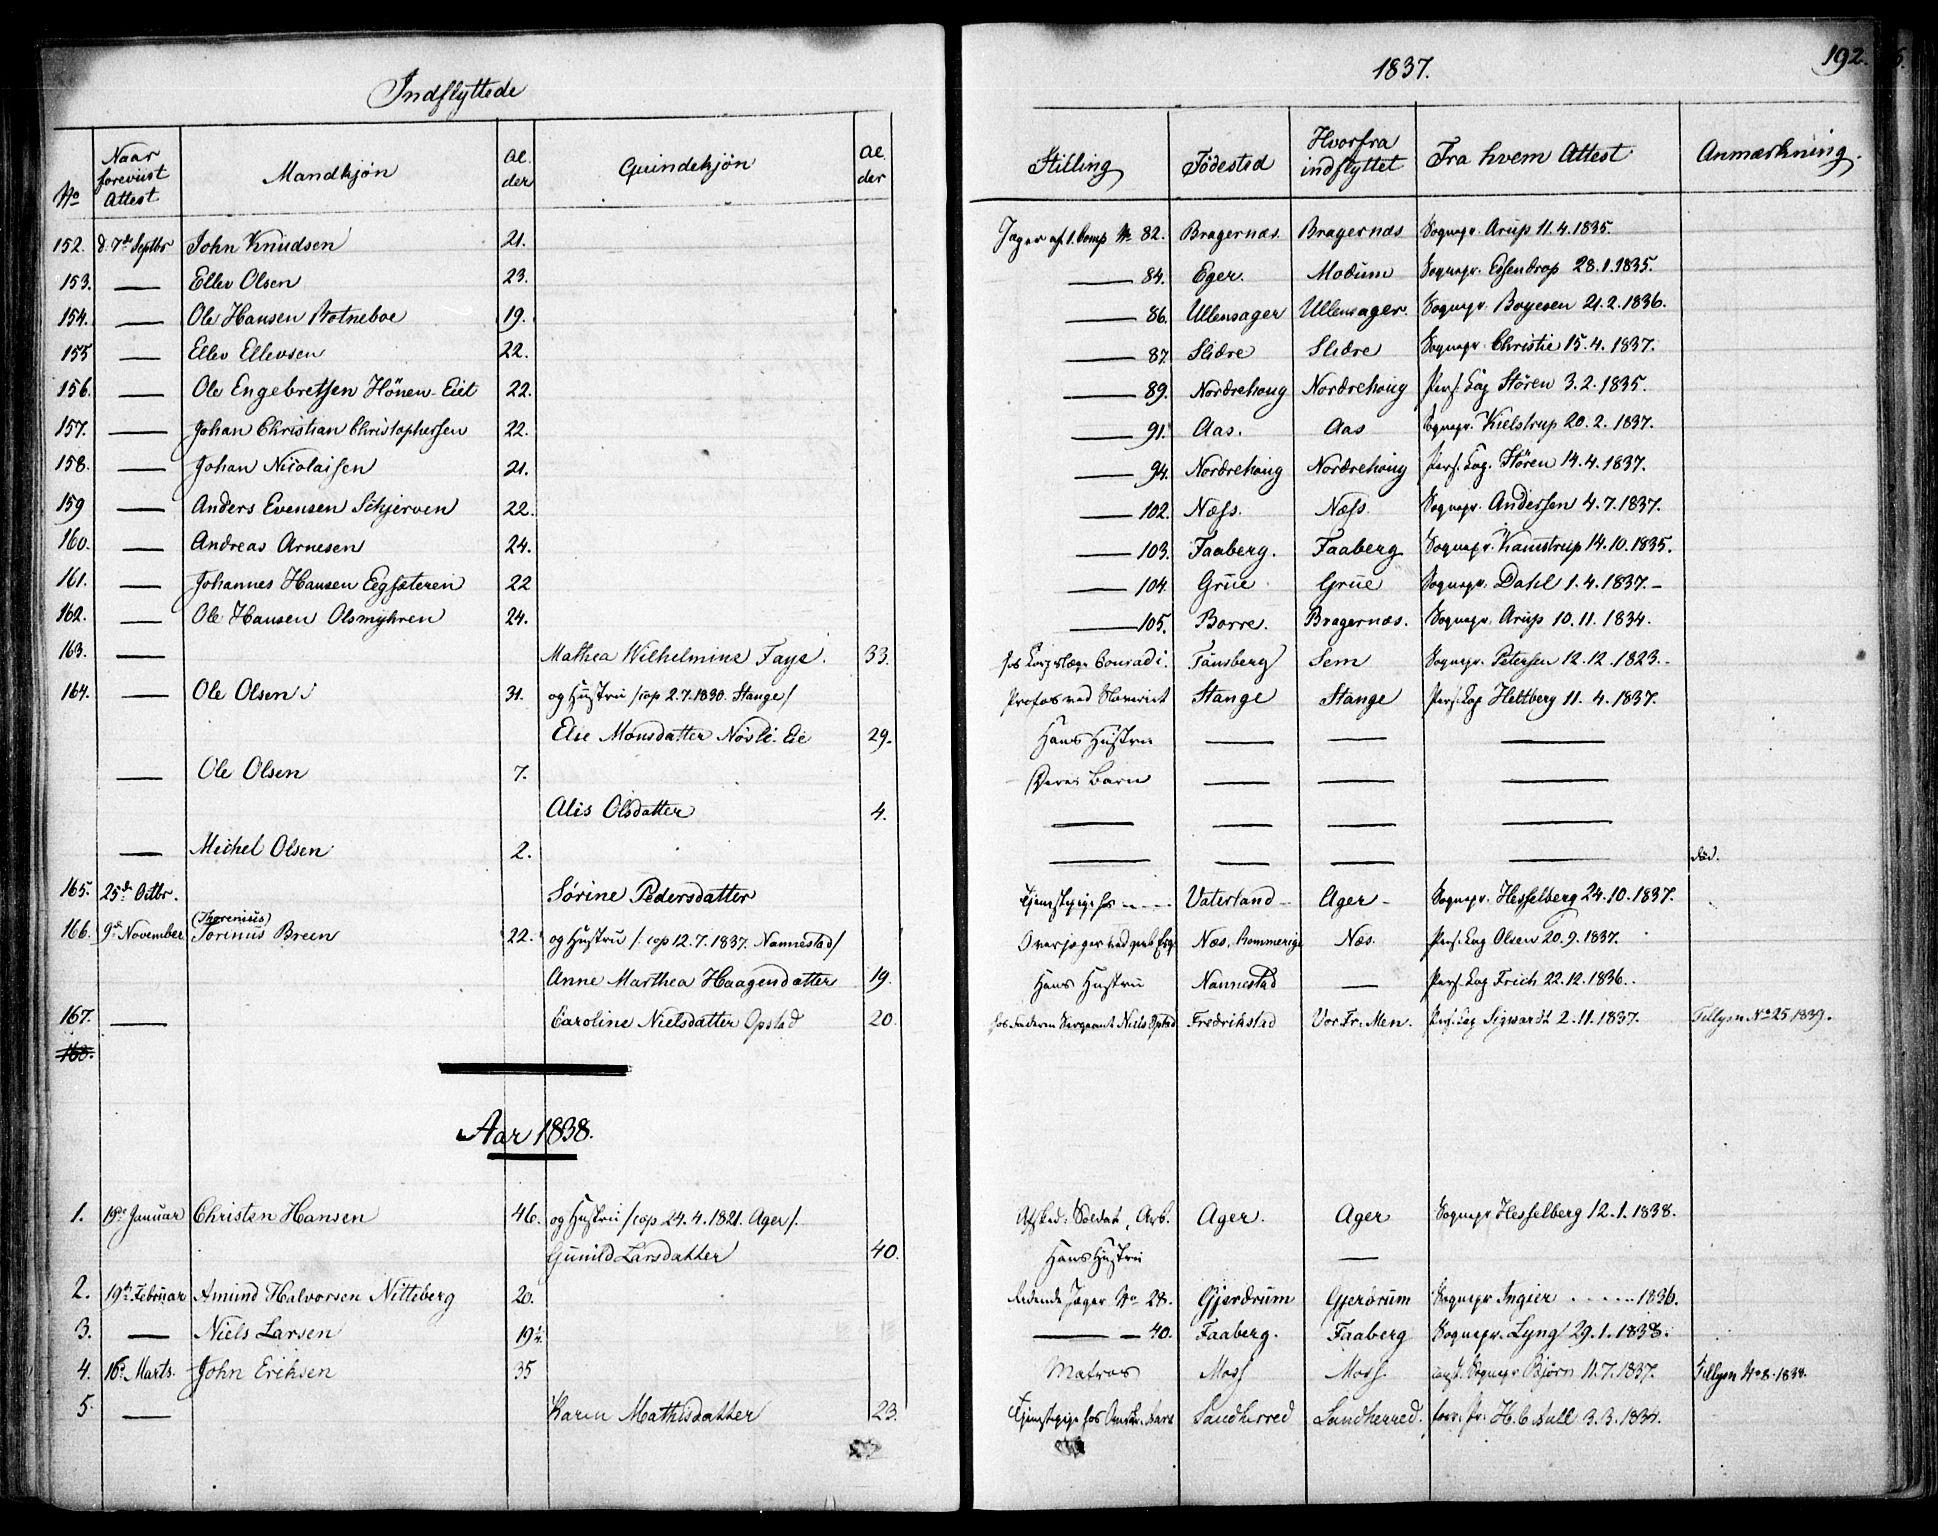 Indflyttede 1837. 192.
No Naar foreviist Attest Mandkjøn Alder Qvindekjøn Alder Stilling Fødested Hvorfra indflyttet Fra hvem Attest Anmærkning.
152. d. 7de Septbr John Knudsen 21. Jæger af 1. Comp No 82. Bragernæs Bragernæs Sognepr. Arup 11.4.1835.
153. — Ellev Olsen 23. — 84. Eger. Modum Sognepr. Essendrop 28.1.1835.
154. — Ole Hansen Rotneboe 19. — 86. Ullensager Ullensager. Sognepr. Boyesen 21.2.1836.
155 — Ellev Ellevsen 22. — 87. Slidre Slidre Sognepr. Christie 15.4.1837.
156. — Ole Engebretsen Hönen-Eiet 22. — 89. Nordrehoug Nordrehoug Pers. Cap. Stören 3.2.1835.
157. — Johan Christian Christophersen 22. — 91. Aas. Aas Sognepr. Kielstrup 20.2.1837.
158. — Johan Nicolaisen 21. — 94. Nordrehoug Nordrehoug Pers. Cap. Stören 14.4.1837.
159 — Anders Evensen Schjerven 22. — 102. Næss. Næss. Sognepr. Anderssen 4.7.1837.
160. — Andreas Arnesen 24. — 103. Faaberg. Faaberg Sognepr. Kamstrup 14.10.1835.
161. — Johannes Hansen Eegsæteren 22 — 104. Grue Grue Sognepr. Dahl 1.4.1837.—
162. — Ole Hansen Olsmyhren 24. — 105. Borre. Bragernæs. Sognepr. Arup 10.11.1834.
163. — Mathea Wilhelmine Faye. 33. hos Corpslæge Conradi. Tönsberg Sem Sognepr. Petersen 12.12.1823.
164. — Ole Olsen 31. og Hustru /cop 2.7.1830. Stange/ Profos ved Slaveriet Stange Stange Pers. Cap Heltberg 11.4.1837.
Else Monsdatter Nøsle-Eie 29. Hans Hustru — — —
— Ole Olsen 7. Deres Barn — — —
Alis Olsdatter 4. — — — —
— Michel Olsen 2. — — — — död.
165. 25de Octbr. Sørine Pedersdatter Tjenestepige hos - - - Vaterland Ager - Sognepr. Hesselberg 24.10.1837.
166. 9de November (Thorenius) Torinus Breen 22. og Hustru /: cop 12.7.1837. Nannestad/ Overjæger ved Næs, Rommerige Næs. Pers. Cap Olsen 20.9.1837.
Anne Marthea Haagensdatter 19. Hans Hustru Nannestad — Pers. Cap Frich 22.12.1836.
167. — Caroline Nielsdatter Opstad 20. hos Faderen Sergeant Niels Opstad Fredrikstad Vor Fr. Men. Pers. Cap Sigwardt 2.11.1837. Tillysn No 25 1839.
168.
Aar 1838.
1. 19de Januar Christen Hansen 46. og Hustru /cop 24.4.1821. Ager/. Afsked. Soldat, Arb. Ager. Ager Sognepr Hesselberg 12.1.1838.
Gunild Larsdatter 40. Hans Hustru —
2. 19de Februar Amund Halvorsen Nitteberg 20. Ridende Jæger No 28. Gjerdrum Gjerdrum Sognepr Ingier ...... 1836.
3. — Niels Larsen 19½. — — 40. Faaberg. Faaberg Sognepr. Lyng 29.1.1838.
4. 16de Marts. John Eriksen 35 Matros Moss Moss. const. Sognepr Bjørn 11.7.1837. Tillysn No 8. 1838.
5. — Karen Mathisdatter 23. Tjenestepige hos Sandherred Sandherred. forr. Pr. H. C. Aall 3.3.1834.